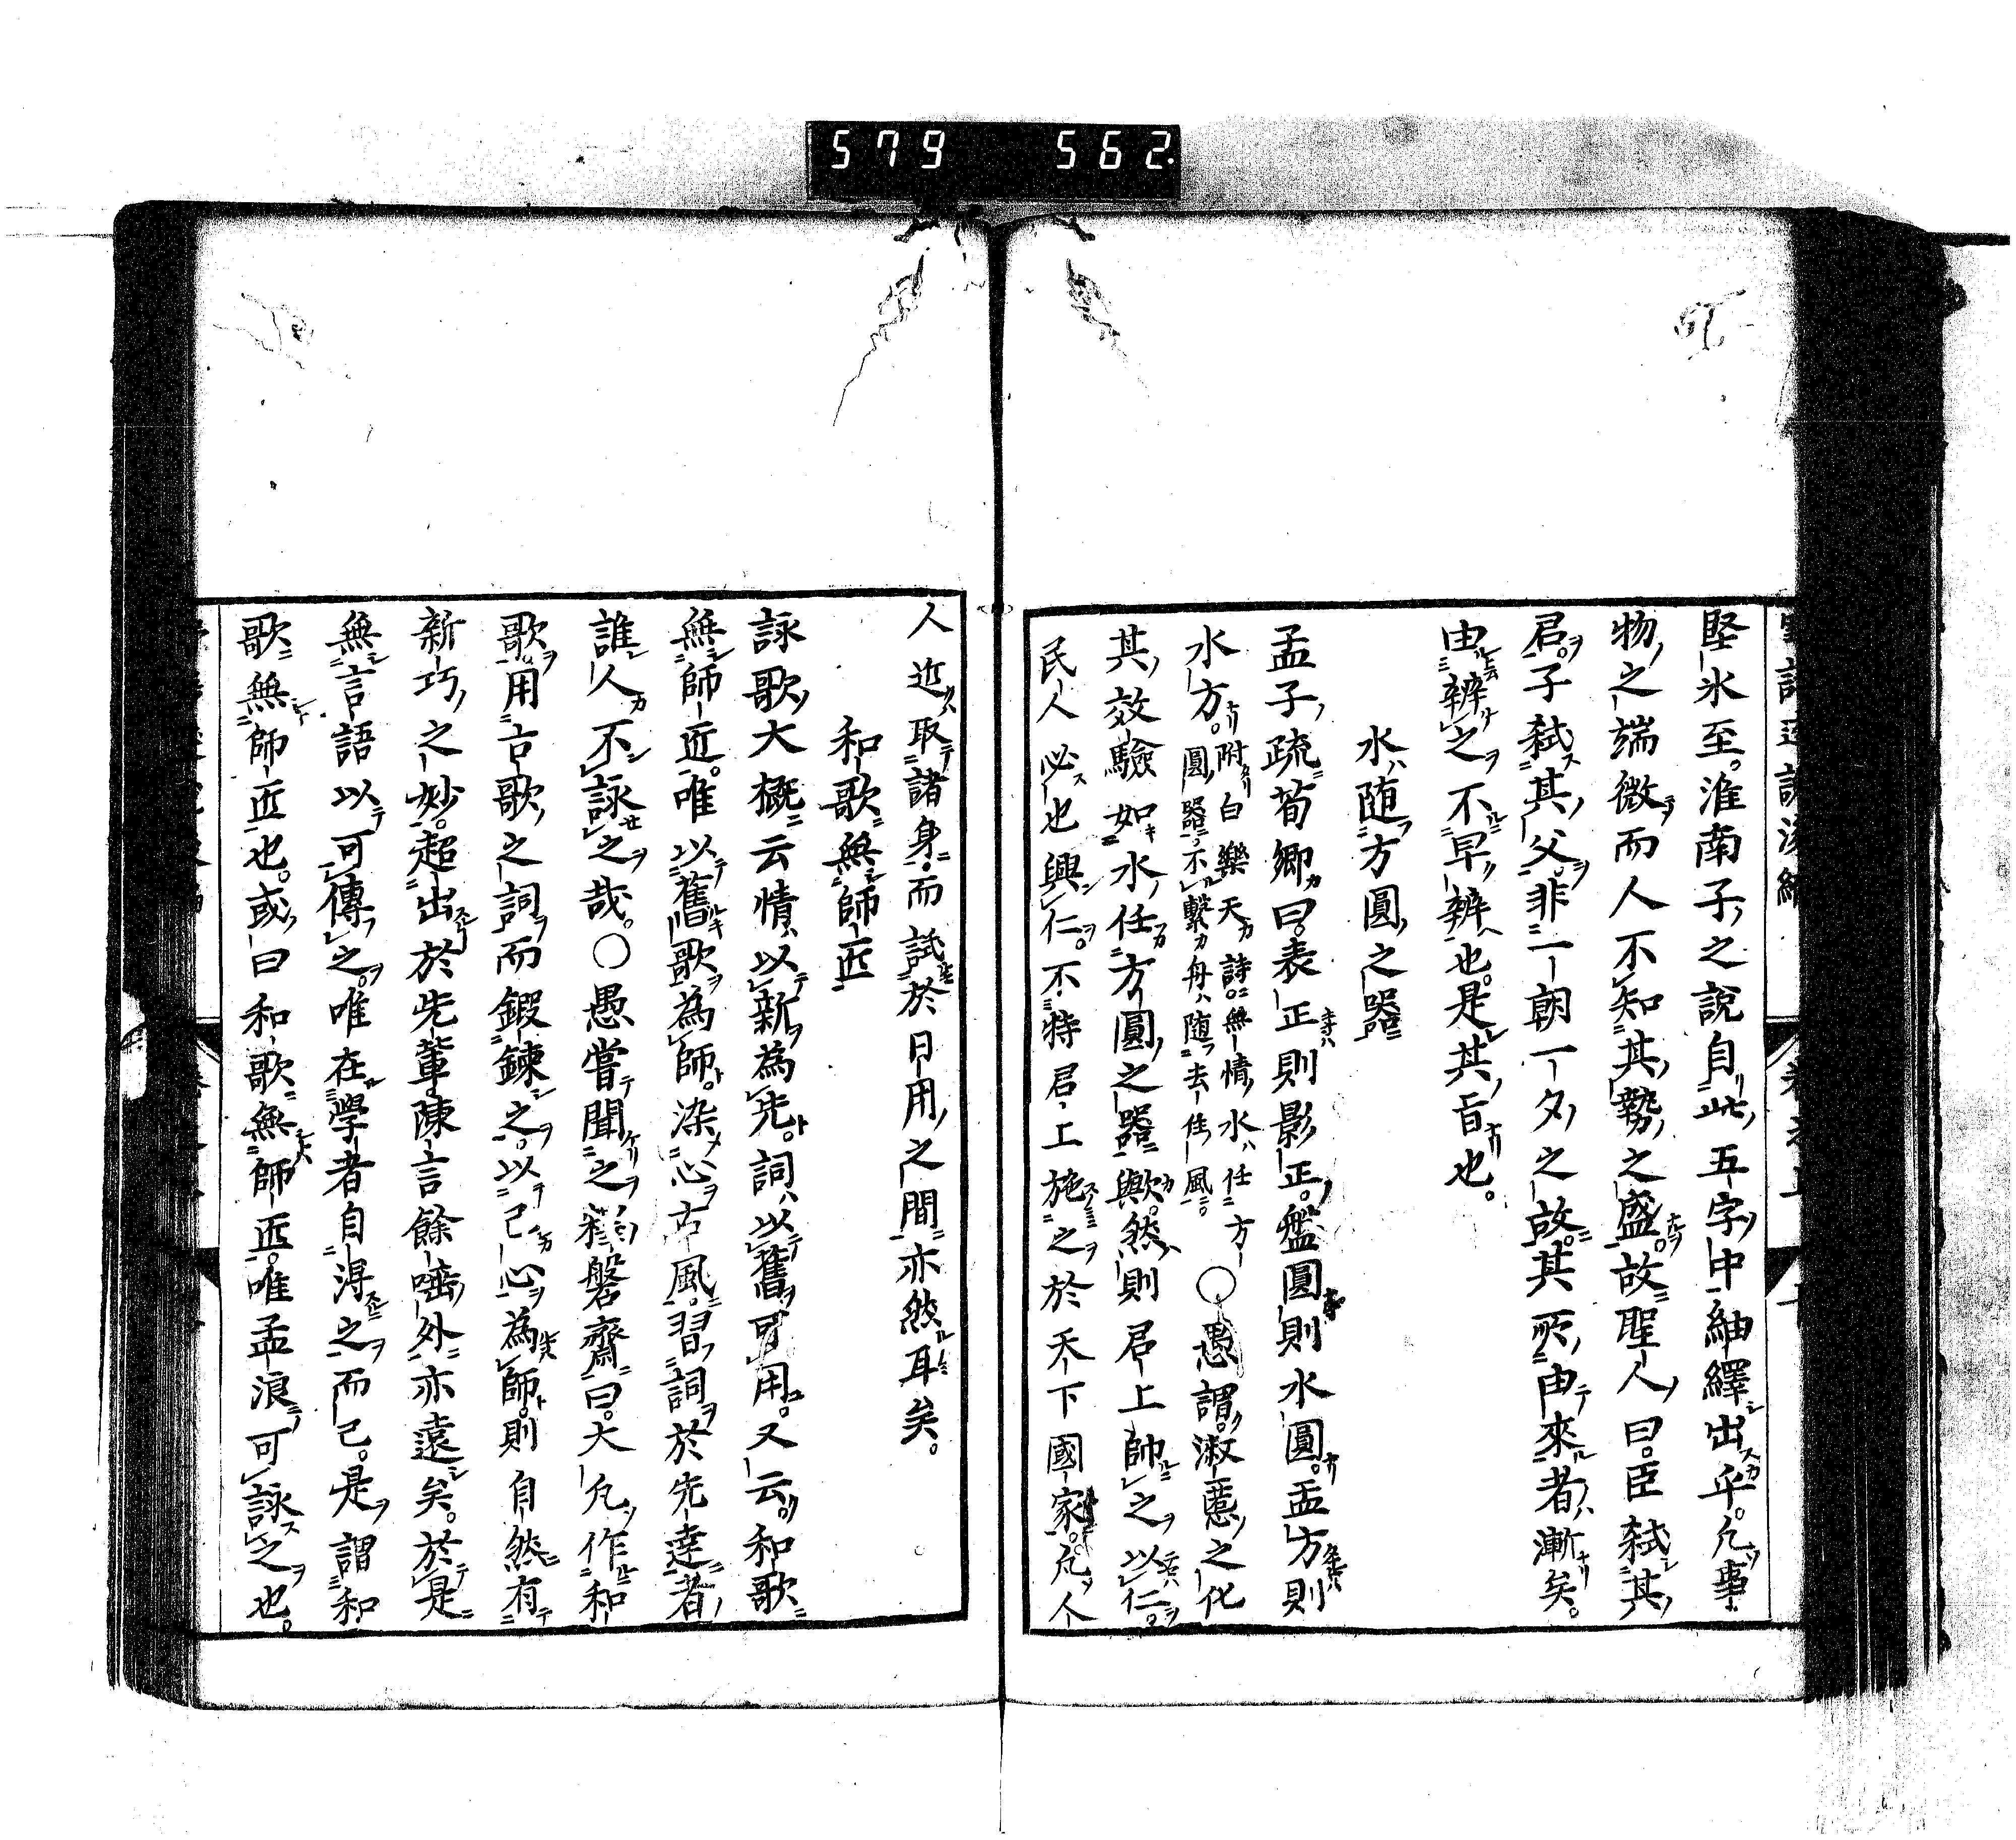 579 562
堅氷至。淮南子之說自此五字中紬繹出乎。凡事
物之端微而人不知其勢之盛。故聖人曰。臣弑其
君。子弑其父。非一朝一夕之故。其所由來者漸矣。
由辨之不早辨也。是其旨也。
水隨方圓之器
孟子疏荀卿曰。表正則影正。盤圓則水圓。盂方則
水方。附白樂天詩。無情水任方
圓器。不繫舟隨去住風。○愚謂。淑慝之化
其效驗如水任方圓之器歟。然則君上帥之以仁。
民人必也興仁。不特君上施之於天下國家。凡人
人近取諸身而試於日用之間亦然耳矣。
和歌無師匠
詠歌大概云情以新為先。詞以舊可用。又云。和歌
無師匠。唯以舊歌為師。染心古風。習詞於先達者
誰人不詠之哉。○愚嘗聞之磐齋曰。大凡作和
歌用古歌之詞而鍛鍊之。以己心為師。則自然有
新巧之妙。超出於先輩陳言餘唾外亦遠矣。於是
無言語以可傳之。唯在學者自得之而已。是謂和
歌無師匠也。或曰和歌無師匠。唯孟浪可詠之也。